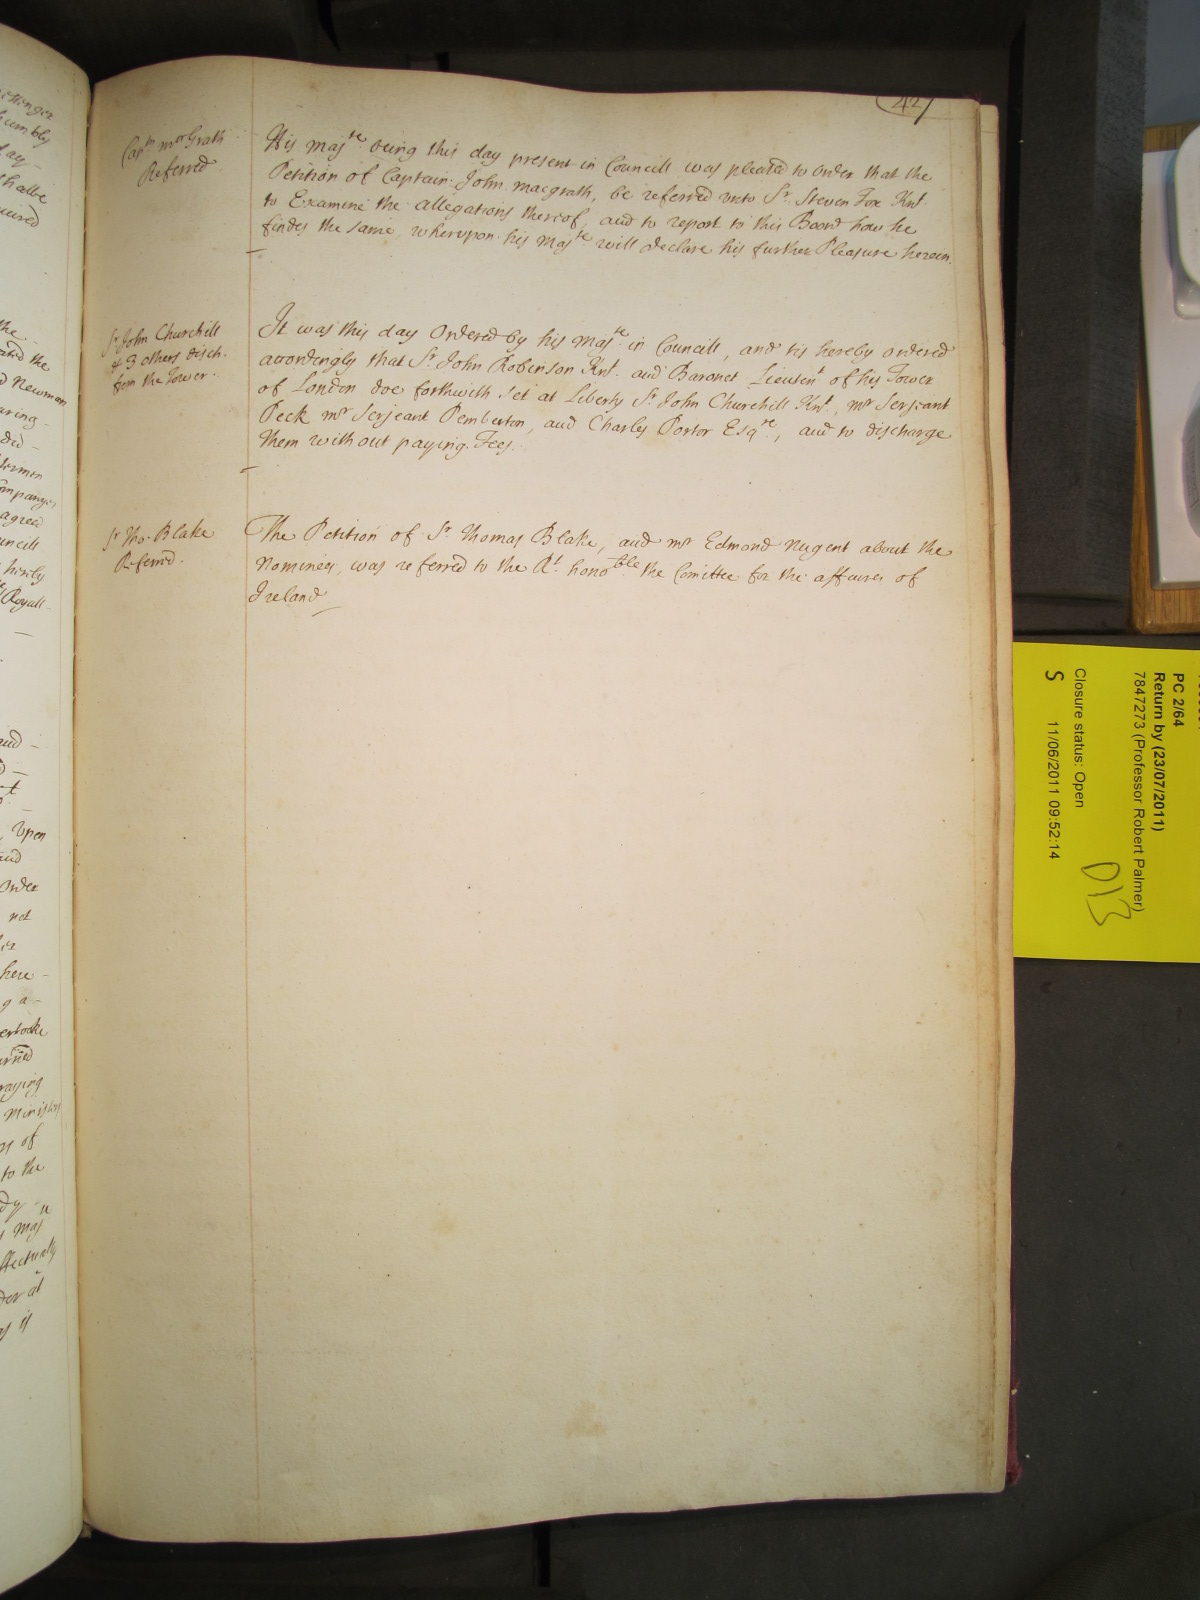 427
Captn mccGrath
Referred
His Majte being this day present in Councill was pleased to order that the
Petition of Captain John Macgrath, be referred unto Sr. Steven Fox Knt.
to Examine the allegations thereof, and to report to this Board how he
findes the same, whereupon his Majte will declare his further Pleasure herein.
Sr John Churchill
& 3 others disch.
from the Tower.
It was this day Ordered by his Majte in Councill, and tis hereby ordered
accordingly that Sr John Robinson Knt. and Baronet Lieutent of his Tower
of London doe forthwith Set at Liberty Sr John Churchill Knt, mr Serjeant
Peck mr Serjeant Pemberton, and Charles Portor Esqre, and to discharge
them without paying Fees.
Sr Tho. Blake
Referrd.
The Petition of Sr Thomas Blake, and mr Edmond Nugent about the
Nominees, was referred to the Rt. honoble the Comittee for the affaires of
Ireland
PC 2/64
Return by (23/07/2011)
7847273 (Professor Robert Palmer)
Closure status: Open
S 11/06/2011 09:52:14
D13
ittinger
humbly
day
shalbe
the
Newman
aring
did
agreed
uncill
Royall
and
Upon
and
Order
not
here
g a
raying
of
to the
Maj